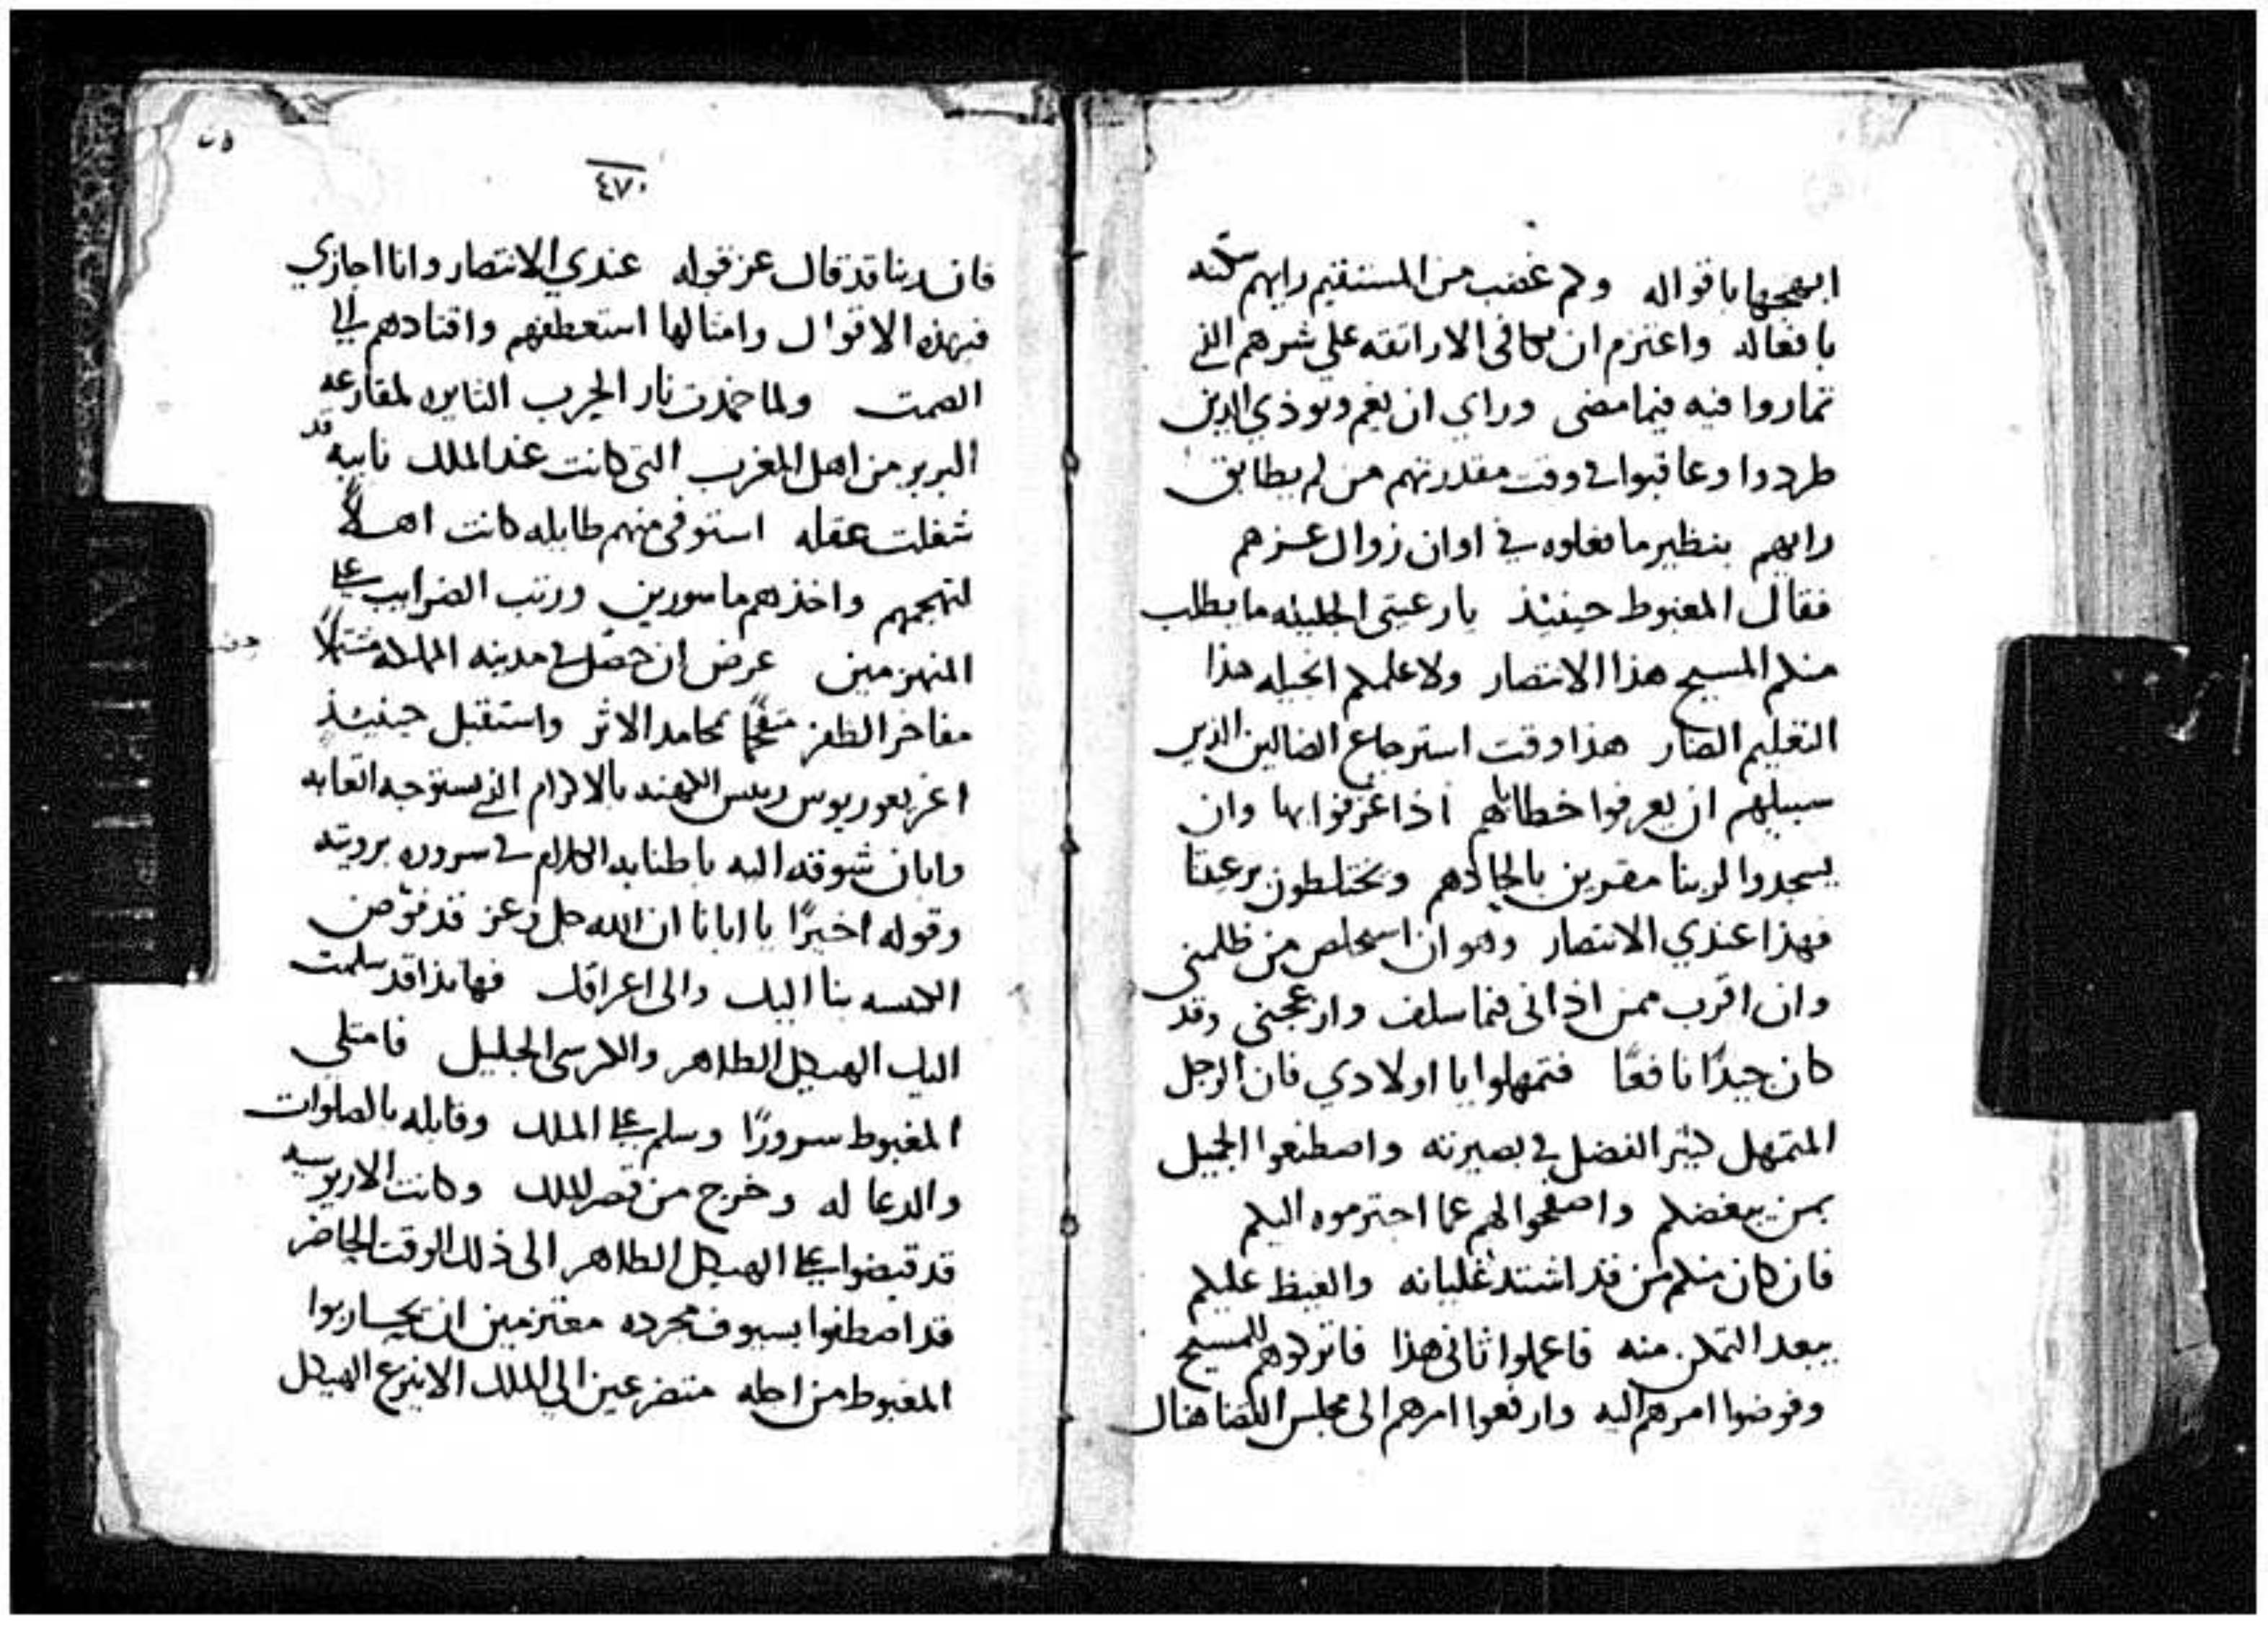 ابهجها باقواله ولم غضب من المستقيم رايهم سكنه
بافعاله واعتزم ان يكافى الاراتقه على شرهم الذي
تماروا فيه فيما مضى وراي ان يغم ويوذي الذين
طردوا وعاقبوا في وقت مقدرتهم من لم يطابق
رايهم بنظير ما فعلوه في اوان زوال عزهم
فقال المغبوط حينيذ يا رعيتى الجليله ما يطلب
منكم المسيح هذا الانتصار ولا علمكم انجيله هذا
التعليم الضار هذا وقت استرجاع الضالين الذين
سبيلهم ان يعرفوا خطاياهم اذا عرفوا بها وان
يسجدوا لربنا مقرين بالحادهم ويختلطون برعيتنا
فهذا عندي الانتصار وهو ان استخلص من ظلمنى
وان اقرب ممن اذانى فيما سلف وازعجنى وقد
كان جيدًا نافعًا فتمهلوا يا اولادي فان الرجل
المتمهل كثير الفضل في بصيرته واصطنعوا الجميل
بمن يبغضكم واصفحوا لهم عما اجترموه اليكم
فان كان منكم من قد اشتد غليانه والغيظ عليكم
ببعد التمكن منه فاعملوا ثانى هذا فاتركوهم للمسيح
وفوضوا امرهم اليه وارفعوا امرهم الى مجلس القضا هناك
٤٧٠
فان ربنا قد قال عز قوله عندي الانتصار وانا اجازي
فبهذه الاقوال وامثالها استعطفهم واقتادهم الي
الصمت ولما خمدت نار الحرب الثايره لمقارعه
البربر من اهل المغرب التى كانت عند الملك نايبه قد
شغلت عقله استوفى منهم طايله كانت اهلاً
لتهجمهم واخذهم ماسورين ورتب الضرايب على
المنهزمين عرض ان حصل في مدينه المملكه مشتملاً
مفاخر الظفر متفخمًا بمحامد الاثر واستقبل حينيذ
اغريغوريوس رييس الكهنه بالاكرام الذي يستوجبه اتعابه
وابان شوقه اليه باطنابه الكلام في سروره برويته
وقوله اخيرًا يا ابانا ان الله جل وعز قد فوض
الكنيسه بنا اليك والى اعراقك فها نذا قد سلمت
اليك الهيكل الطاهر والكرسى الجليل فامتلى
المغبوط سرورًا وسلم على الملك وقابله بالصلوات
والدعا له وخرج من قصر الملك وكانت الاريوسيه
قد قبضوا على الهيكل الطاهر الى ذلك الوقت الحاضر
قد اصطفوا بسيوف مجرده معتزمين ان يحاربوا
المغبوط من اجله متضرعين الى الملك الا ينزع الهيكل